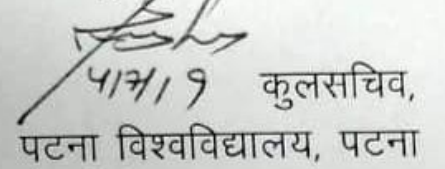 4/7/19 कुलसचिव,
पटना विश्वविद्यालय, पटना